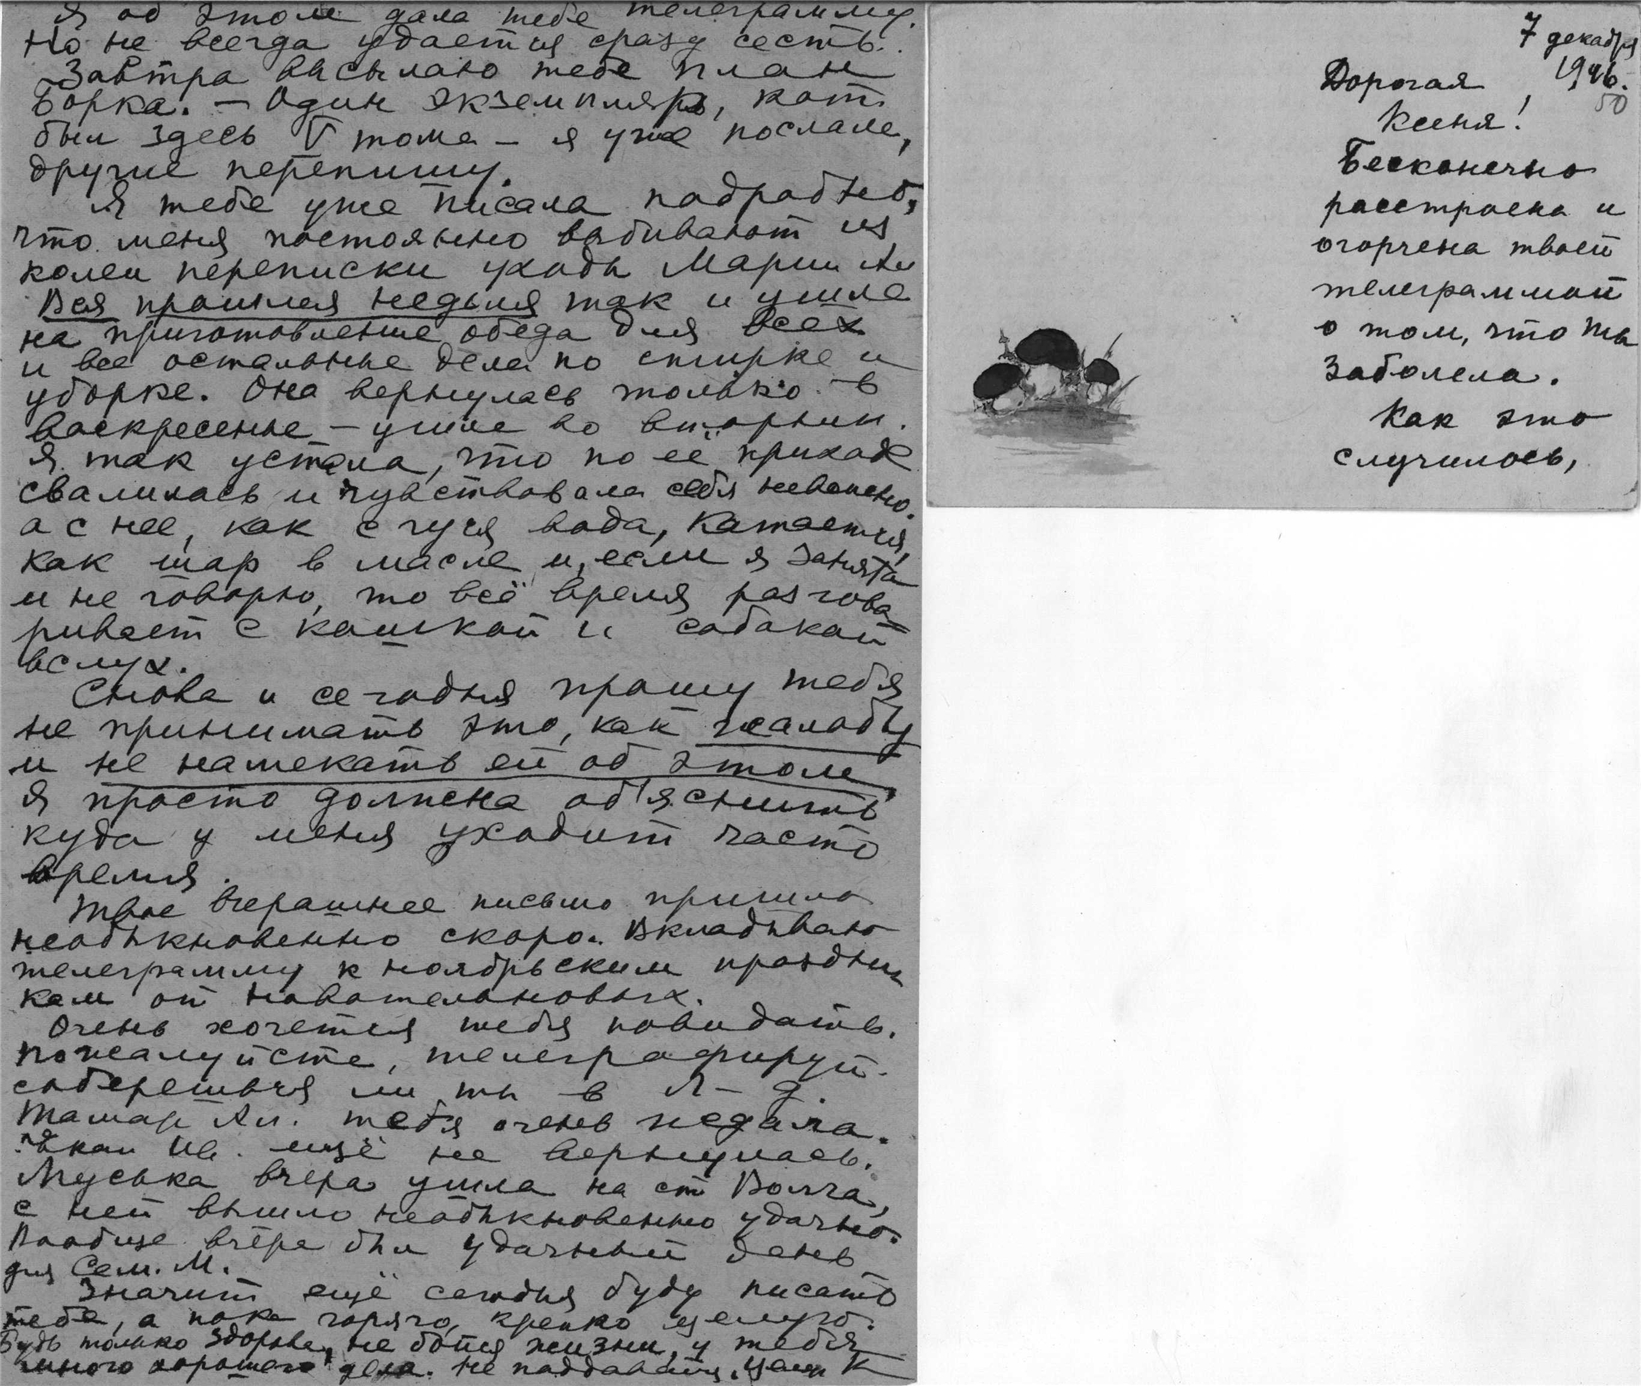 я об этом дала тебе телеграмму.
Но не всегда удается сразу сесть.
Завтра высылаю тебе план
Борка. – Один экземпляр, кот.
был здесь V тома – я уже послала,
другие перепишу.
Я тебе уже писала подробно,
что меня постоянно выбивают из
колеи переписки уходы Марии Ан
Вся прошлая неделя так и ушла
на приготовление обеда для всех
и все остальные дела по стирке и
уборке. Она вернулась только в
воскресенье – ушла во вторник.
Я так устала, что по её приходе
свалилась и чувствовала себя неважно.
а с нее, как с гуся вода, катается,
как шар в масле и, если я занята
и не говорю, то всё время разгова
ривает с кошкой и собакой
вслух.
Снова и сегодня прошу тебя
не принимать это, как жалобу
и не намекать ей об этом
Я просто должна об'яснить
куда у меня уходит часто
время.
Твое вчерашнее письмо пришло
необыкновенно скоро. Вкладываю
телеграмму к ноябрьским праздни
кам от
Очень хочется тебя повидать.
Пожалуйста, телеграфируй
соберешься ли ты в Л-д.
Тамар. Ан. тебя очень ждала.
Ив. ещё не вернулась.
Муська вчера ушла на ст Волга,
с ней вышло необыкновенно удачно.
Вообще вчера был удачный день
для Сем. М.
Значит ещё сегодня буду писать
тебе, а пока горячо, крепко целую.
Будь только здорова, не бойся жизни, у тебя
много хорошего дела. Не поддавайся. Целую К
7 декабря
1946.
50
Дорогая
Ксеня!
Бесконечно
расстроена и
огорчена твоей
телеграммой
о том, что ты
заболела.
Как это
случилось,